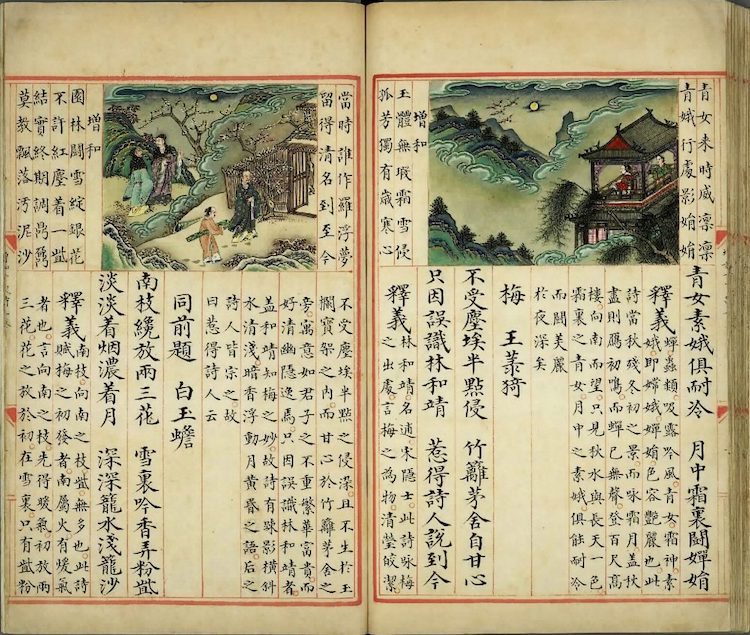 青女来時威凛凛
青娥行處影娟娟
增和
玉體無瑕霜雪侵
孤芳獨有歲寒心
青女素娥俱耐冷　月中霜裏鬪嬋娟
釋義　蟬蟲類吸露吟風青女霜神素
娥即嫦娥嬋娟色容艷麗也此
詩當秋殘冬初之景而咏霜月盖秋
盡則鴈初鳴而蟬已無聲登百尺高
樓向南而望只見秋水與長天一色
霜裏之青女月中之素娥俱能耐冷
而鬪美麗
於夜深矣
梅　王菉猗
不受塵埃半點侵　竹籬茅舍自甘心
只因誤識林和靖　惹得詩人說到今
釋義　林和靖名逋宋隱士此詩咏梅
之出處言梅之為物清瑩皎潔
當時誰作羅浮夢
留得清名到至今
增和
園林鬪雪綻銀花
不許紅塵着一些
結實終期調鼎鼐
莫教飄落汚泥沙
不受塵埃半點之侵深且不生於玉
欄寳架之内而甘心於竹籬茅舍之
旁寓意如君子之不重繁華富貴而
好清幽隱逸焉只因誤識林和靖者
盖和靖知梅之妙故詩有踈影横斜
水清淺暗香浮動月黄昏之語后之
詩人皆宗之故
曰惹得詩人云
同前題　白玉蟾
南枝纔放兩三花　雪裏吟香弄粉些
淡淡着烟濃着月　深深籠水淺籠沙
釋義　南枝向南之枝些無多也此詩
賦梅之初發者南屬火有煖氣
者也言向南之枝先得暖氣初放兩
三花花之放於初在雪裏只有些粉